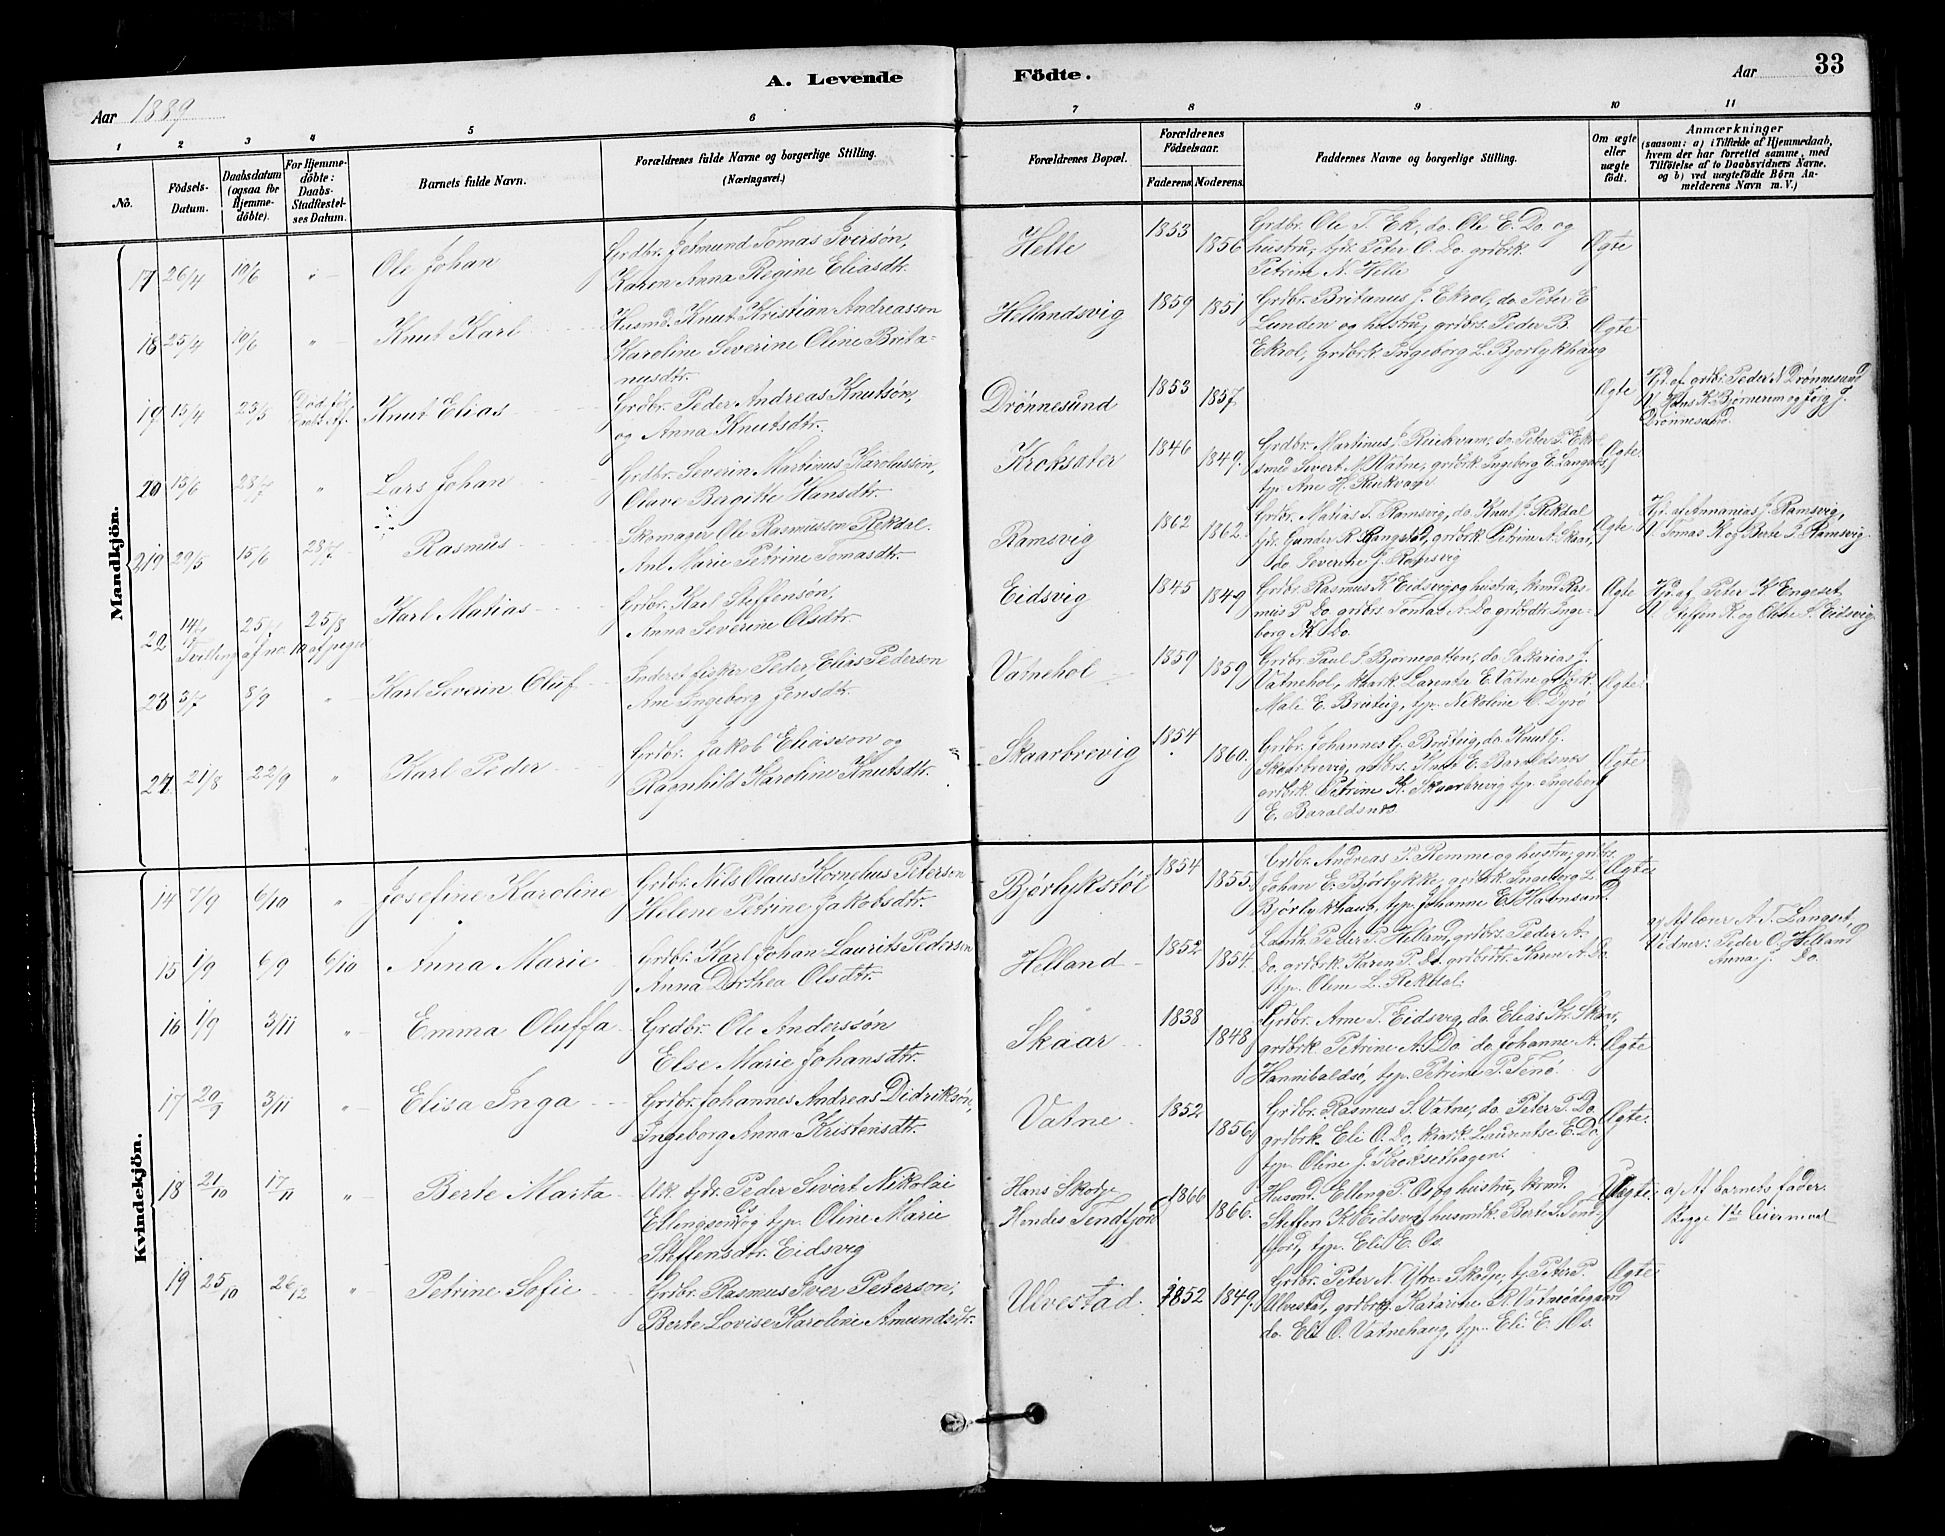 33
A. Levende Födte.
Aar 1889
Aar
1 2 3 4 5 6 7 8 9 10 11
No.
Födsels-Datum.
Daabsdatum (ogsaa for Hjemmedöbte).
For Hjemmedöbte: Daabs-Stadfæstelses Datum.
Barnets fulde Navn.
Forældrenes fulde Navne og borgerlige Stilling. (Næringsvei.)
Forældrenes Bopæl.
Forældrenes Födselsaar.
Faderens. Moderens.
Faddernes Navne og borgerlige Stilling.
Om ægte eller uægte födt.
Anmærkninger (saasom: a) i Tilfælde af Hjemmedaab, hvem der har forrettet samme, med Tilföielse af to Daabsvidners Navne, og b) ved uægtefödte Börn Anmelderens Navn m. V.)
Mandkjön.
17 26/4 10/6 " Ole Johan
Grdbr. Jetmund Tomas Iversön,
Karen Anna Regine Eliasdtr.
Helle 1853 1856
Grdbr. Ole T. Ek, do. Ole E. Do og
hustru, tjdr. Peter O. Do grdbrk.
Petrine N. Helle
Ægte
18 25/4 10/6 " Knut Karl
Husmd. Knut Kristian Andreasson
Karoline Severine Oline Brita-
nusdtr.
Hellandsvig 1859 1851
Grdbr. Britanus J. Ekrol, do. Peter E
Lunden og hustru, grdbrs. Peder B.
Ekrol, Grdbrk Ingeborg L. Bjorlykhaug
Ægte
19 15/4 23/5 Knut Elias
Grdbr. Peder Andreas Knutsön,
og Anna Knutsdtr.
Drönnesund 1853 1857
Ægte
Hjd. af grdbr. Peder N Drönnesund
V. Hans K. Bjørnerem og Jørg J.
Drönnesund.
20 15/6 28/7 " Lars Johan
Grdbr. Severin Martinus Karolusson,
Olave Bergitte Hansdtr.
Kroksæter 1846 1849.
Grdbr. Martinus J. Ruckvam, do. Peter P. Ekre
smed Sivert M. Vatne, grdbrk Ingeborg E. Langnes,
tjp. Ane H. Ruckvam.
Ægte
21 29/5 15/6 28/7 Rasmus
Skomager Ole Rasmusson Rekdal.
Ane Marie Petrine Tomasdtr.
Ramsvig 1862 1862.
Grdbr. Matias T. Ramsvig, do. Knut J. Rekdal
tjdr. Gunder R. Rangstad, grdbrk Petrine A. Skaar,
do Severine J. Ramsvig
Ægte
Hjd. af Annanias J. Ramsvig,
V. Tomas K. og Berte J. Ramsvig.
22 14/7 25/7 25/8 Karl Matias
Tvilling af no. 10 af piger
Grdbr. Karl Steffensön,
Anna Severine Olsdtr.
Eidsvig 1845 1849
Grdbr. Rasmus K Eidsvig og hustru, krmd Ras-
mus P. Do. grdbrs. Tomas A. Do grdbrdtr Inge-
borg K. Do.
Ægte
Hjd. af Peter K Engeset,
V. Steffen K. og Oline S. Eidsvig.
23 3/7 8/9 " Karl Severin Oluf
Inderst fisker Peder Elias Pederson
Ane Ingeborg Jensdtr.
Vatnehol 1859 1859
Grdbr. Paul J. Bjørnegotten, do. Sakarias J.
Vatnehol, Karentse E. Vatne, grdbrk.
Mali E. Bruteig, tjp. Nikoline O. Dyrö
Ægte
24 21/8 22/9 " Karl Peder
Grdbr. Jakob Eliasson og
Ragnhild Karoline Knutsdtr.
Skaarbrevig 1854. 1860.
Grdbr. Johannes G. Bruteig, do. Knut G.
Skaarbrevig, grdbrs. Knut E. Baraldsnes
grdbrk. Petrine K. Skaarbrevig tjp. Ingeborg
E. Baraldsnes.
Ægte
Kvindekjön.
14 7/9 6/10 " Josefine Karoline
Grdbr. Nils Olaus Kornelius Peterson
Helene Petrine Jakobsdtr.
Bjørlykstöl 1854 1855.
Grdbr. Andreas P. Remme og hustru, grdbr.
Johan E. Bjørlykke, grdbrk. Ingeborg L.
Bjørlykhaug, tjp. Johanne E. Holmsund.
Ægte
15 1/9 6/9 6/10 Anna Marie
Grdbr. Karl Johan Laurits Pederson
Anna Dorthea Olsdtr.
Helland 1852 1854.
Peder P. Helland, grdbrs. Peder A.
Do, grdbrk. Karen P. Do. grdbrdtr. Karen A. Do.
tjp. Oline L. Rekdal.
a) Af lærer A. T. Langset,
Vidner: Peder O. Helland
Anna J. Do.
16 1/9 3/11 " Emma Oluffa
Grdbr. Ole Andersson
Else Marie Johansdtr.
Skaar 1838 1848
Grdbr. Arne T. Eidsvig, do. Elias Kr. Skaar,
grdbrk. Petrine A. Do. do. Johanne A.
Hannibaldsö, tjp. Petrine P. Tenö.
Ægte
17 20/9 3/11 " Elisa Inga
Grdbr. Johannes Andreas Didriksön,
Ingeborg Anna Kristensdtr.
Vatne 1852 1856.
Grdbr. Rasmus S. Vatne, do. Peter P. Do.
grdbrk. Eli O. Do, kvark. Laurentse E. Do,
tjp. Oline J. Kroksethagen.
Ægte
18 21/10 17/11 " Berte Marta
Uk. tjdr. Peder Sivert Nikolai
Ellingsen Os og tjp. Oline Marie
Steffensdtr. Eidsvig
Hans Skodje
Hendes Tendfjord 1866 1866.
Husmd. Elling P. Os og hustru, krmd.
Steffen K. Eidsvig, husmk. Berte S. Tend-
fjord, tjp. Eli E. Os.
Uægte
a) Af barnets fader.
Begge 1ste leiermaal
19 25/10 26/12 " Petrine Sofie
Grdbr. Rasmus Iver Peterson,
Berte Lovise Karoline Amundsdtr.
Ulvestad. 1852 1849.
Grdbr. Peter N. Ytre-Skodje, tj. Peter P.
Ulvestad, grdbrk. Katarine R. Vatneödegaard
do. Eli O. Vatnehaug, tjp. Eli E. Os.
Ægte